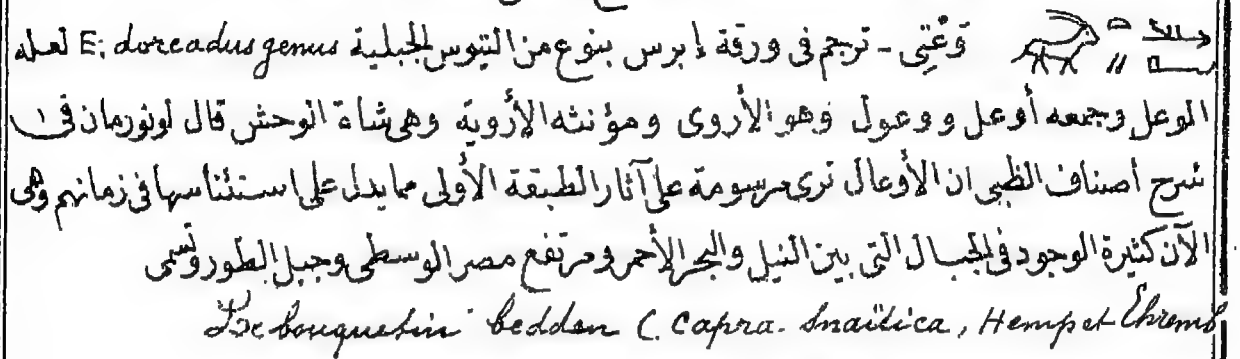 قوعتى - ترجم فى ورقة إبرس بنوع من التيوس الجبلية E: doreadus genus لعله
الوعل وجمعه أوعل ووعول وهو الأروى ومؤنثه الأروية وهى شاة الوحش قال لونورمان فى
شرح أصناف الظبى ان الأوعال ترى مرسومة على آثار الطبقة الأولى مما يدل على استئناسها فى زمانهم وهى
الآن كثيرة الوجود فى الجبال التى بين النيل والبحر الأحمر ومرتفع مصر الوسطى وجبل الطور وتسمى
Le bouquetin bedden (. Capra. Snaïtica, Hemp et Ehremb